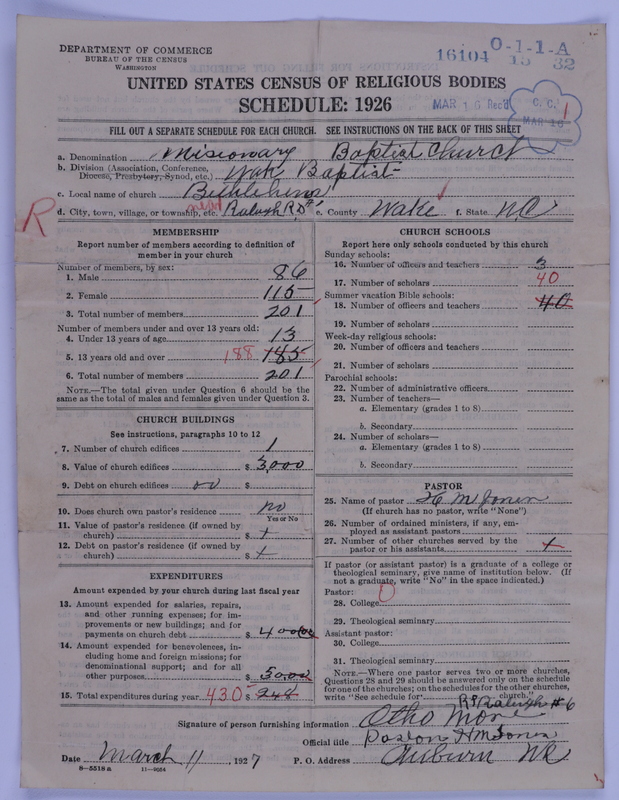 DEPARTMENT OF COMMERCE
BUREAU OF THE CENSUS
WASHINGTON
16104
O-1-1-A
15 32
UNITED STATES CENSUS OF RELIGIOUS BODIES
SCHEDULE: 1926
MAR 16 Rec'd
C. C. 1
MAR 16
FILL OUT A SEPARATE SCHEDULE FOR EACH CHURCH. SEE INSTRUCTIONS ON THE BACK OF THIS SHEET
a. Denomination Misionary Baptist Church
b. Division (Association, Conference, Diocese, Presbytery, Synod, etc.) Wake Baptist
c. Local name of church Bethlehem
R
near
d. City, town, village, or township, etc. Raleigh R. e. County Wake f. State NC
MEMBERSHIP
Report number of members according to definition of member in your church
Number of members, by sex:
1. Male 86
2. Female 115
3. Total number of members 201
Number of members under and over 13 years old:
4. Under 13 years of age 13
5. 13 years old and over 188 185
6. Total number of members 201
NOTE.—The total given under Question 6 should be the same as the total of males and females given under Question 3.
CHURCH BUILDINGS
See instructions, paragraphs 10 to 12
7. Number of church edifices 1
8. Value of church edifices $ 3,000
9. Debt on church edifices 00 $
10. Does church own pastor's residence no
Yes or No
11. Value of pastor's residence (if owned by church) $
12. Debt on pastor's residence (if owned by church) $
EXPENDITURES
Amount expended by your church during last fiscal year
13. Amount expended for salaries, repairs, and other running expenses; for improvements or new buildings; and for payments on church debt $ 400
14. Amount expended for benevolences, including home and foreign missions; for denominational support; and for all other purposes $ 50.00
15. Total expenditures during year 430 $ 248
CHURCH SCHOOLS
Report here only schools conducted by this church
Sunday schools:
16. Number of officers and teachers 3
17. Number of scholars 40
Summer vacation Bible schools:
18. Number of officers and teachers 40
19. Number of scholars
Week-day religious schools:
20. Number of officers and teachers
21. Number of scholars
Parochial schools:
22. Number of administrative officers
23. Number of teachers—
a. Elementary (grades 1 to 8)
b. Secondary
24. Number of scholars—
a. Elementary (grades 1 to 8)
b. Secondary
PASTOR
25. Name of pastor H M Jones
(If church has no pastor, write "None")
26. Number of ordained ministers, if any, employed as assistant pastors
27. Number of other churches served by the pastor or his assistants
If pastor (or assistant pastor) is a graduate of a college or theological seminary, give name of institution below. (If not a graduate, write "No" in the space indicated.)
Pastor: 0
28. College
29. Theological seminary
Assistant pastor:
30. College
31. Theological seminary
NOTE.—Where one pastor serves two or more churches, Questions 28 and 29 should be answered only on the schedule for one of the churches; on the schedules for the other churches, write "See schedule for church."
Raleigh #6
Signature of person furnishing information Otho
Official title Paston H M Jones
Date March 11, 1927 P. O. Address Auburn NC
8-5518 a 11-9054